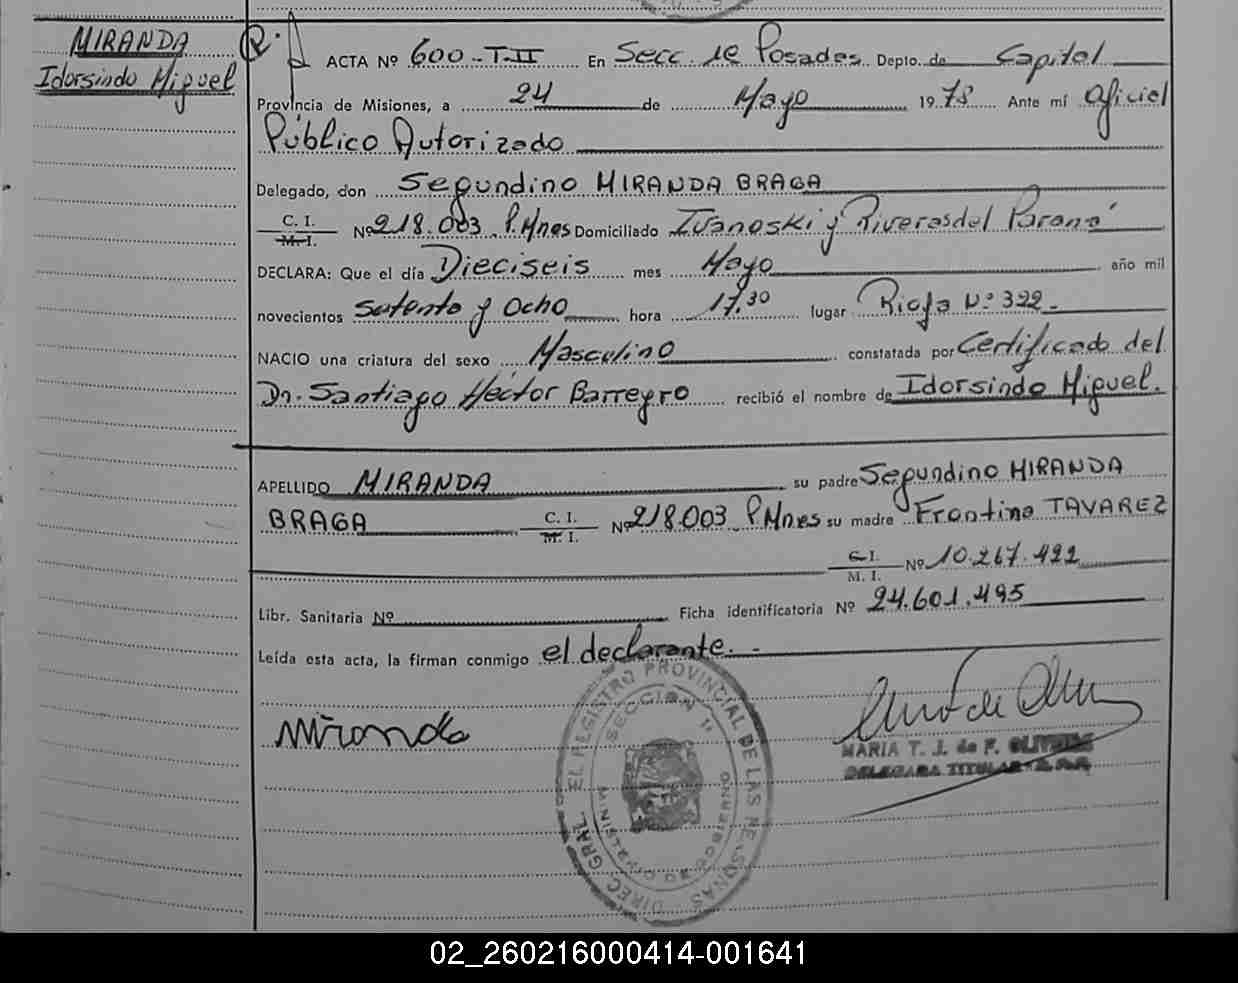 MIRANDA
Idorsindo Miguel
ACTA Nº 600-T-II En Secc. 1ª Posadas Depto. de Capital
Provincia de Misiones, a 24 de Mayo 1978 Ante mí Oficial
Público Autorizado
Delegado, don Segundino MIRANDA BRAGA
C. I.
M. I.
Nº 218.003 P.Mnes Domiciliado Ivanoski y Riveras del Paraná
DECLARA: Que el día Dieciseis mes Mayo año mil
novecientos Setenta y Ocho hora 17,30 lugar Rioja Nº 322-
NACIO una criatura del sexo Masculino constatada por Certificado del
Dr. Santiago Héctor Barreyro recibió el nombre de Idorsindo Miguel.
APELLIDO MIRANDA su padre Segundino MIRANDA
BRAGA C. I. M. I. Nº 218.003 P.Mnes su madre Frontina TAVAREZ
C. I. M. I. Nº 10.267.422
Libr. Sanitaria Nº Ficha identificatoria Nº 24.601.495
Leída esta acta, la firman conmigo el declarante.-
Miranda
MARIA T. J. de F. OLIVERA
DELEGADA TITULAR
DIREC. GRAL. EL REGISTRO PROVINCIAL DE LAS PERSONAS
SECCION 1ª
MINISTERIO DE GOBIERNO
02_260216000414-001641